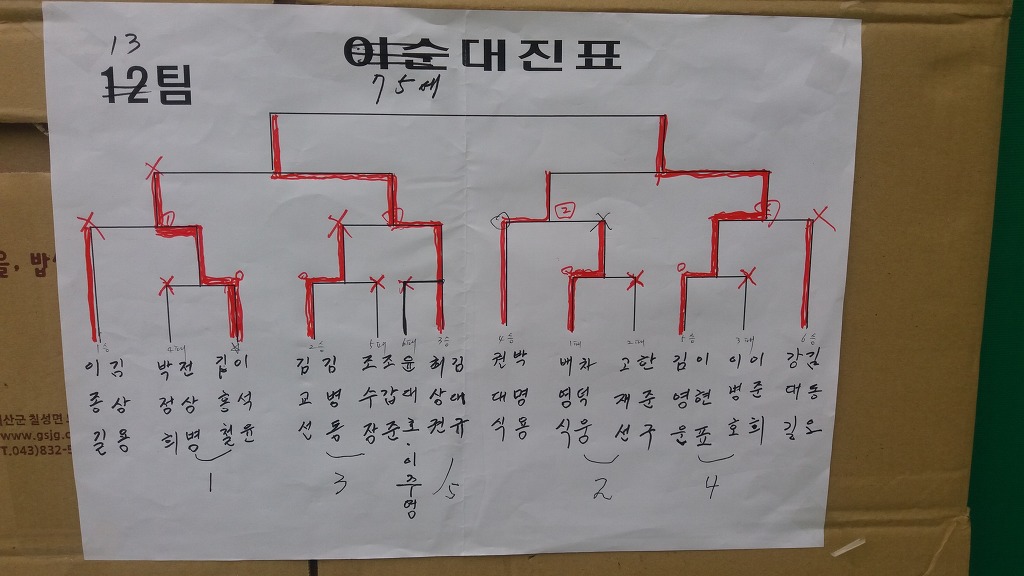 13
12팀
이순대진표
75세
을, 밥
1승
4패
2승
5패
6패
3승
4승
1패
2패
5승
3패
6승
②
이종길 김상용
박정희 전상병
김홍철 이석윤
김교선 김병동
조수장 조갑준
윤대호·이주영
허상권 김대규
권대식 박명용
배영식 차덕웅
고재선 한준구
김영운 이현표
이병호 이준희
강대길 김동오
괴산군 칠성면
www.gsjg.c
T.043)832-5
1
3
5
2
4